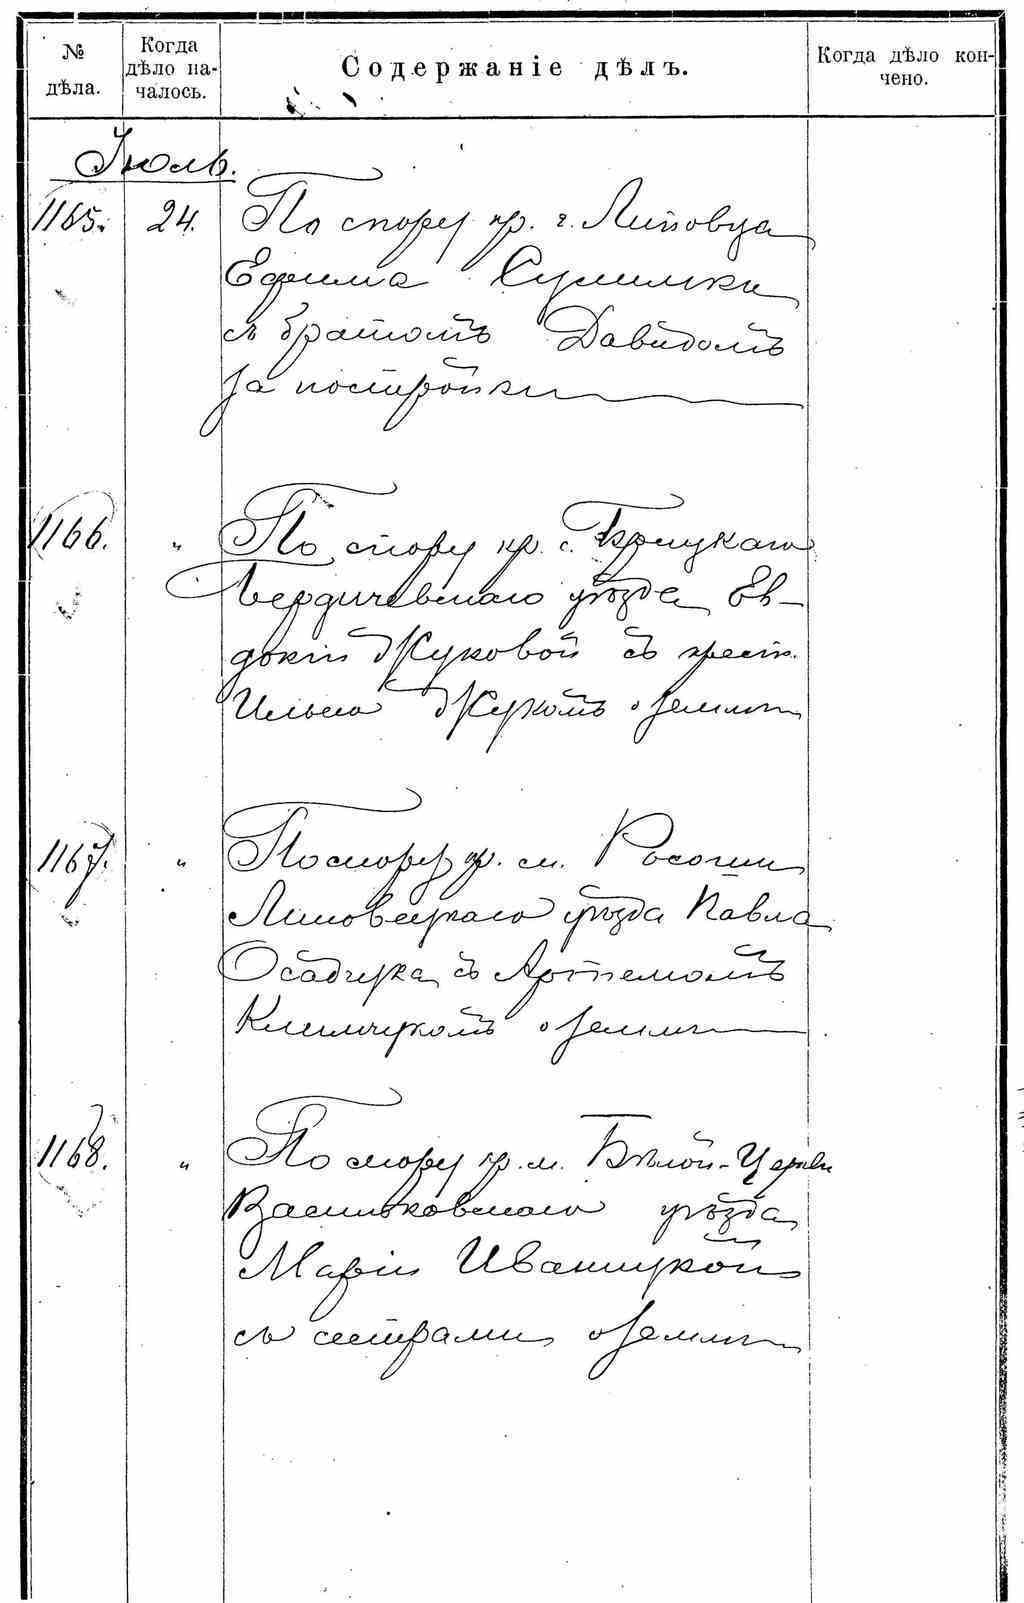 № дѣла.
Когда дѣло на-
чалось.
Содержаніе дѣлъ.
Когда дѣло кон-
чено.
Іюль.
1165. 24. По спору кр. г. Липовца
Ефима
съ братомъ Давидомъ
за постройки
1166. „ По спору кр. с.
Бердичевскаго уѣзда Ев-
докіи Жуковой съ крест.
Ильею Жукомъ о землѣ
1167. „ По спору кр. м. Росоши
Липовецкаго уѣзда Павла
Осадчука съ Артемомъ
Климчукомъ о землѣ
1168. „ По спору кр. м. Бѣлой-Церкви
Васильковскаго уѣзда
Маріи Иваницкой
съ сестрами о землѣ